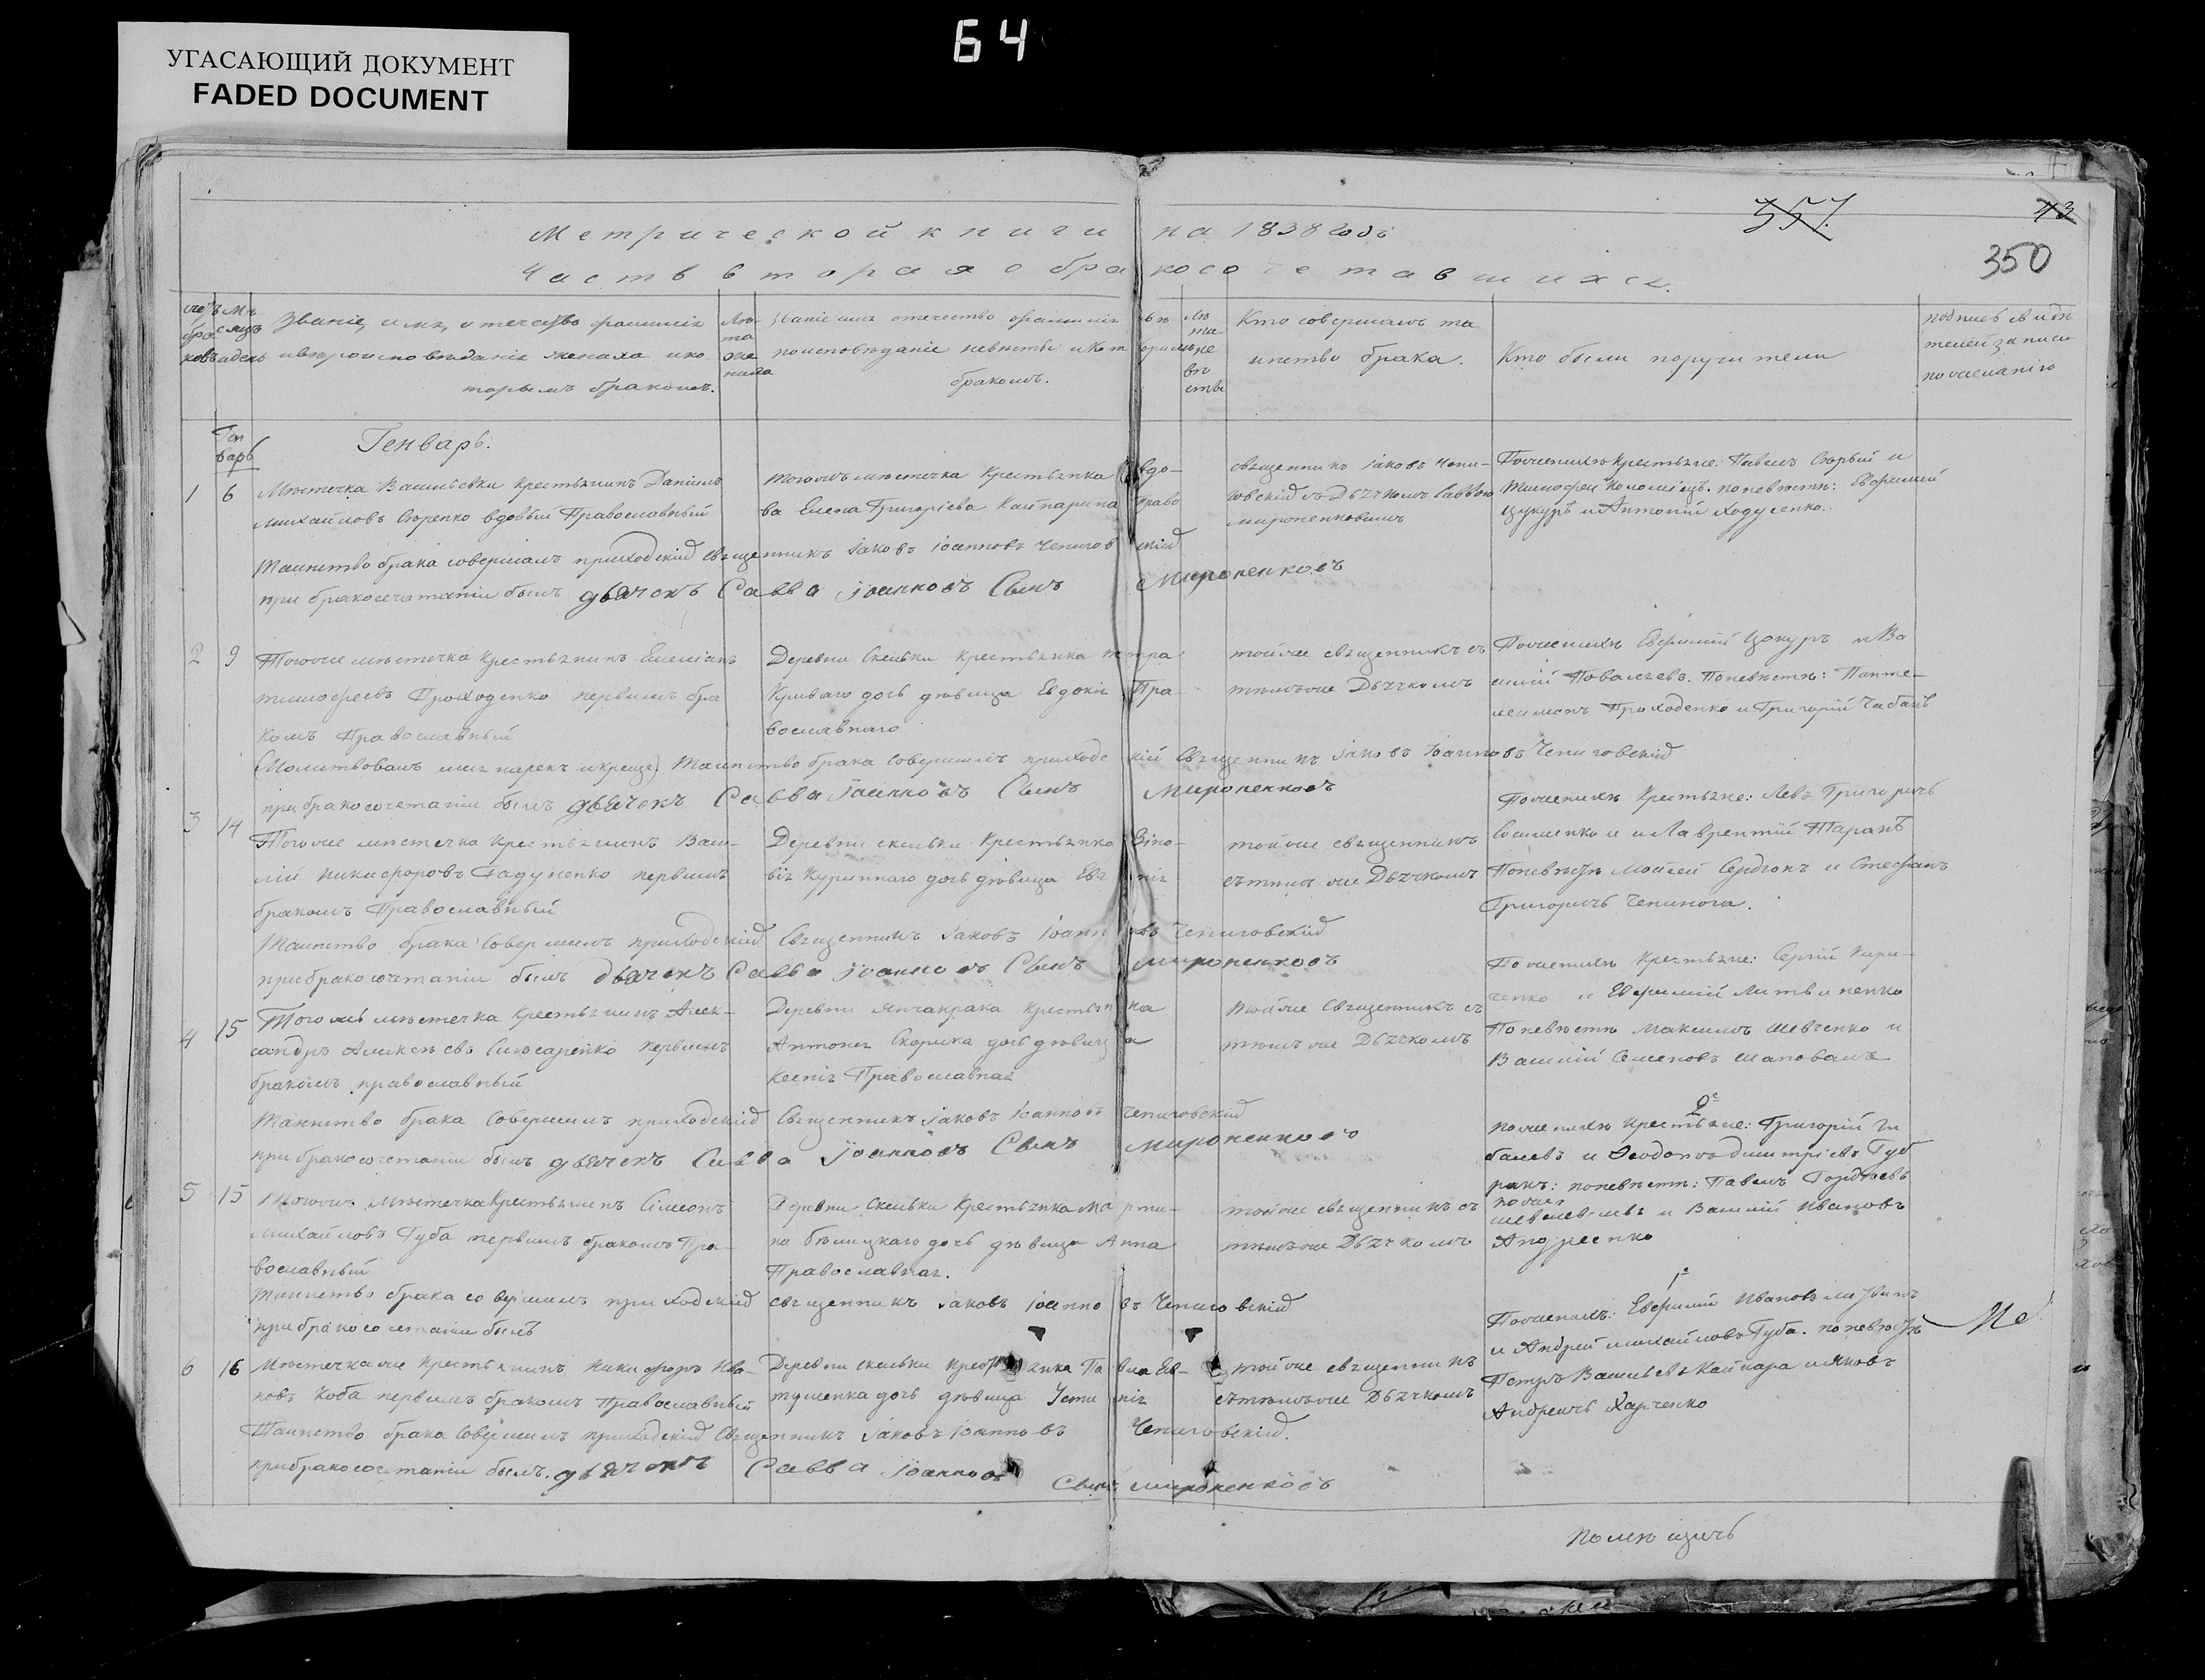 64
УГАСАЮЩИЙ ДОКУМЕНТ
FADED DOCUMENT
43
350
Метрической книги на 1838 годъ
Часть вторая о бракосочетавшихся.
Званіе, имя, отечество фамилія
и вѣроисповѣданіе жениха и ко
торымъ бракомъ.
Лѣ
та
же
ниха
Званіе имя отечество фамилія
исповѣданіе невѣсты и кот
бракомъ.
лѣ
та
не
вѣ
сты
Кто совершалъ та
инство брака.
Кто были поручители
Ген
варь
Генварь.
1 6
Мѣстечка Василѣвки крестьянинъ Даніилъ
Михайловъ Сѣренко вдовый Православный
тогожъ мѣстечка крестьянка вдо-
ва Елена Григоріева Кайнарина право
священникъ Іаковъ Чепи-
говскій съ Дьячкомъ Саввою
Мироненковымъ
По женихѣ крестьяне: Павелъ Сѣрый и
Тимофей Коломіецъ. по невѣстѣ: Евфимій
Цукуръ и Антоній Ходусенко.
Таинство брака совершалъ приходскій священникъ Іаковъ Іоанновъ Чепиговскій
при бракосочетаніи былъ дьячокъ Савва Іоанновъ Сынъ Мироненковъ
2 9
Тогоже мѣстечка крестьянинъ Емеліанъ
Тимофеевъ Проходенко первымъ бра
комъ Православный
Деревни Скельки крестьянка Петра
Криваго дочь дѣвица Евдокія Пра-
вославнаго
тойже священникъ съ
тѣмъже Дьячкомъ
По женихѣ Евфимій Цокуръ и Ва
силій Ковалевъ. По невѣстѣ: Панте-
леимонъ Проходенко и Григорій Чабанъ
Молитвовалъ имя нарекъ и креще Таинство брака совершилъ приходскій Священникъ Іаковъ Іоанновъ Чепиговскій
при бракосочетаніи былъ дьячокъ Савва Іоанновъ Сынъ Мироненковъ
3 14
Тогоже мѣстечка крестьянинъ Васи-
лій Никифоровъ Гадученко первымъ
бракомъ Православный
Деревни скельки Крестьянка Зіно-
вія Куриннаго дочь дѣвица Евгенія
тойже священникъ
съ тѣмъ же Дьячкомъ
По женихѣ Крестьяне: Левъ Григорьевъ
и Лаврентій Таранъ
По невѣстѣ Мойсей Сердюкъ и Стефанъ
Григорьевъ Чепинога.
Таинство брака совершилъ приходскій Священникъ Іаковъ Іоанновъ Чепиговскій
при бракосочетаніи былъ дьячокъ Савва Іоанновъ Сынъ Мироненковъ
4 15
Тогожъ мѣстечка крестьянинъ Алек-
сандръ Алексѣевъ Слюсаренко первымъ
бракомъ православный
Деревни Янчакрака крестьянка
Антонія Скорика дочь дѣвица
Ксенія Православная
тойже Священникъ съ
тѣмъже Дьячкомъ
По женихѣ Крестьяне: Сергій Кири-
ченко и Евфимій Литвиненко
По невѣстѣ Максимъ Шевченко и
Василій Семеновъ Шаповалъ
Таинство брака совершилъ приходскій Священникъ Іаковъ Іоанновъ Чепиговскій
при бракосочетаніи былъ дьячокъ Савва Іоанновъ Сынъ Мироненковъ
5 15
Тогожъ мѣстечка Крестьянинъ Сімеонъ
Михайловъ Губа первымъ бракомъ Пра-
вославный
Деревни Скельки Крестьянка Марти-
на Бѣлицкаго дочь дѣвица Анна
Православная.
тойже священникъ съ
тѣмъже Дьячкомъ
2е
по женихѣ крестьяне: Григорій
и Ѳеодоръ Дмитріевъ
по невѣстѣ: Павелъ Гордѣевъ
и Василій Ивановъ
Андреенко
Таинство брака совершилъ приходскій священникъ Іаковъ Іоанновъ Чепиговскій
при бракосочетаніи былъ
6 16
Мѣстечкаже крестьянинъ Никифоръ Ива-
новъ Коба первымъ бракомъ Православный
Деревни скельки крестьянка Павла Ев-
тушенка дочь дѣвица Устинія
тойже священникъ
съ тѣмъже Дьячкомъ
1е
По женихѣ: Евфимій Ивановъ
и Андрей Михайловъ Губа. по невѣстѣ
Петръ Васильевъ Кайнара и Яковъ
Андреевъ Харченко
Таинство брака совершилъ приходскій Священникъ Іаковъ Іоанновъ Чепиговскій.
при бракосочетаніи былъ дьячокъ Савва Іоанновъ
Сынъ Мироненковъ